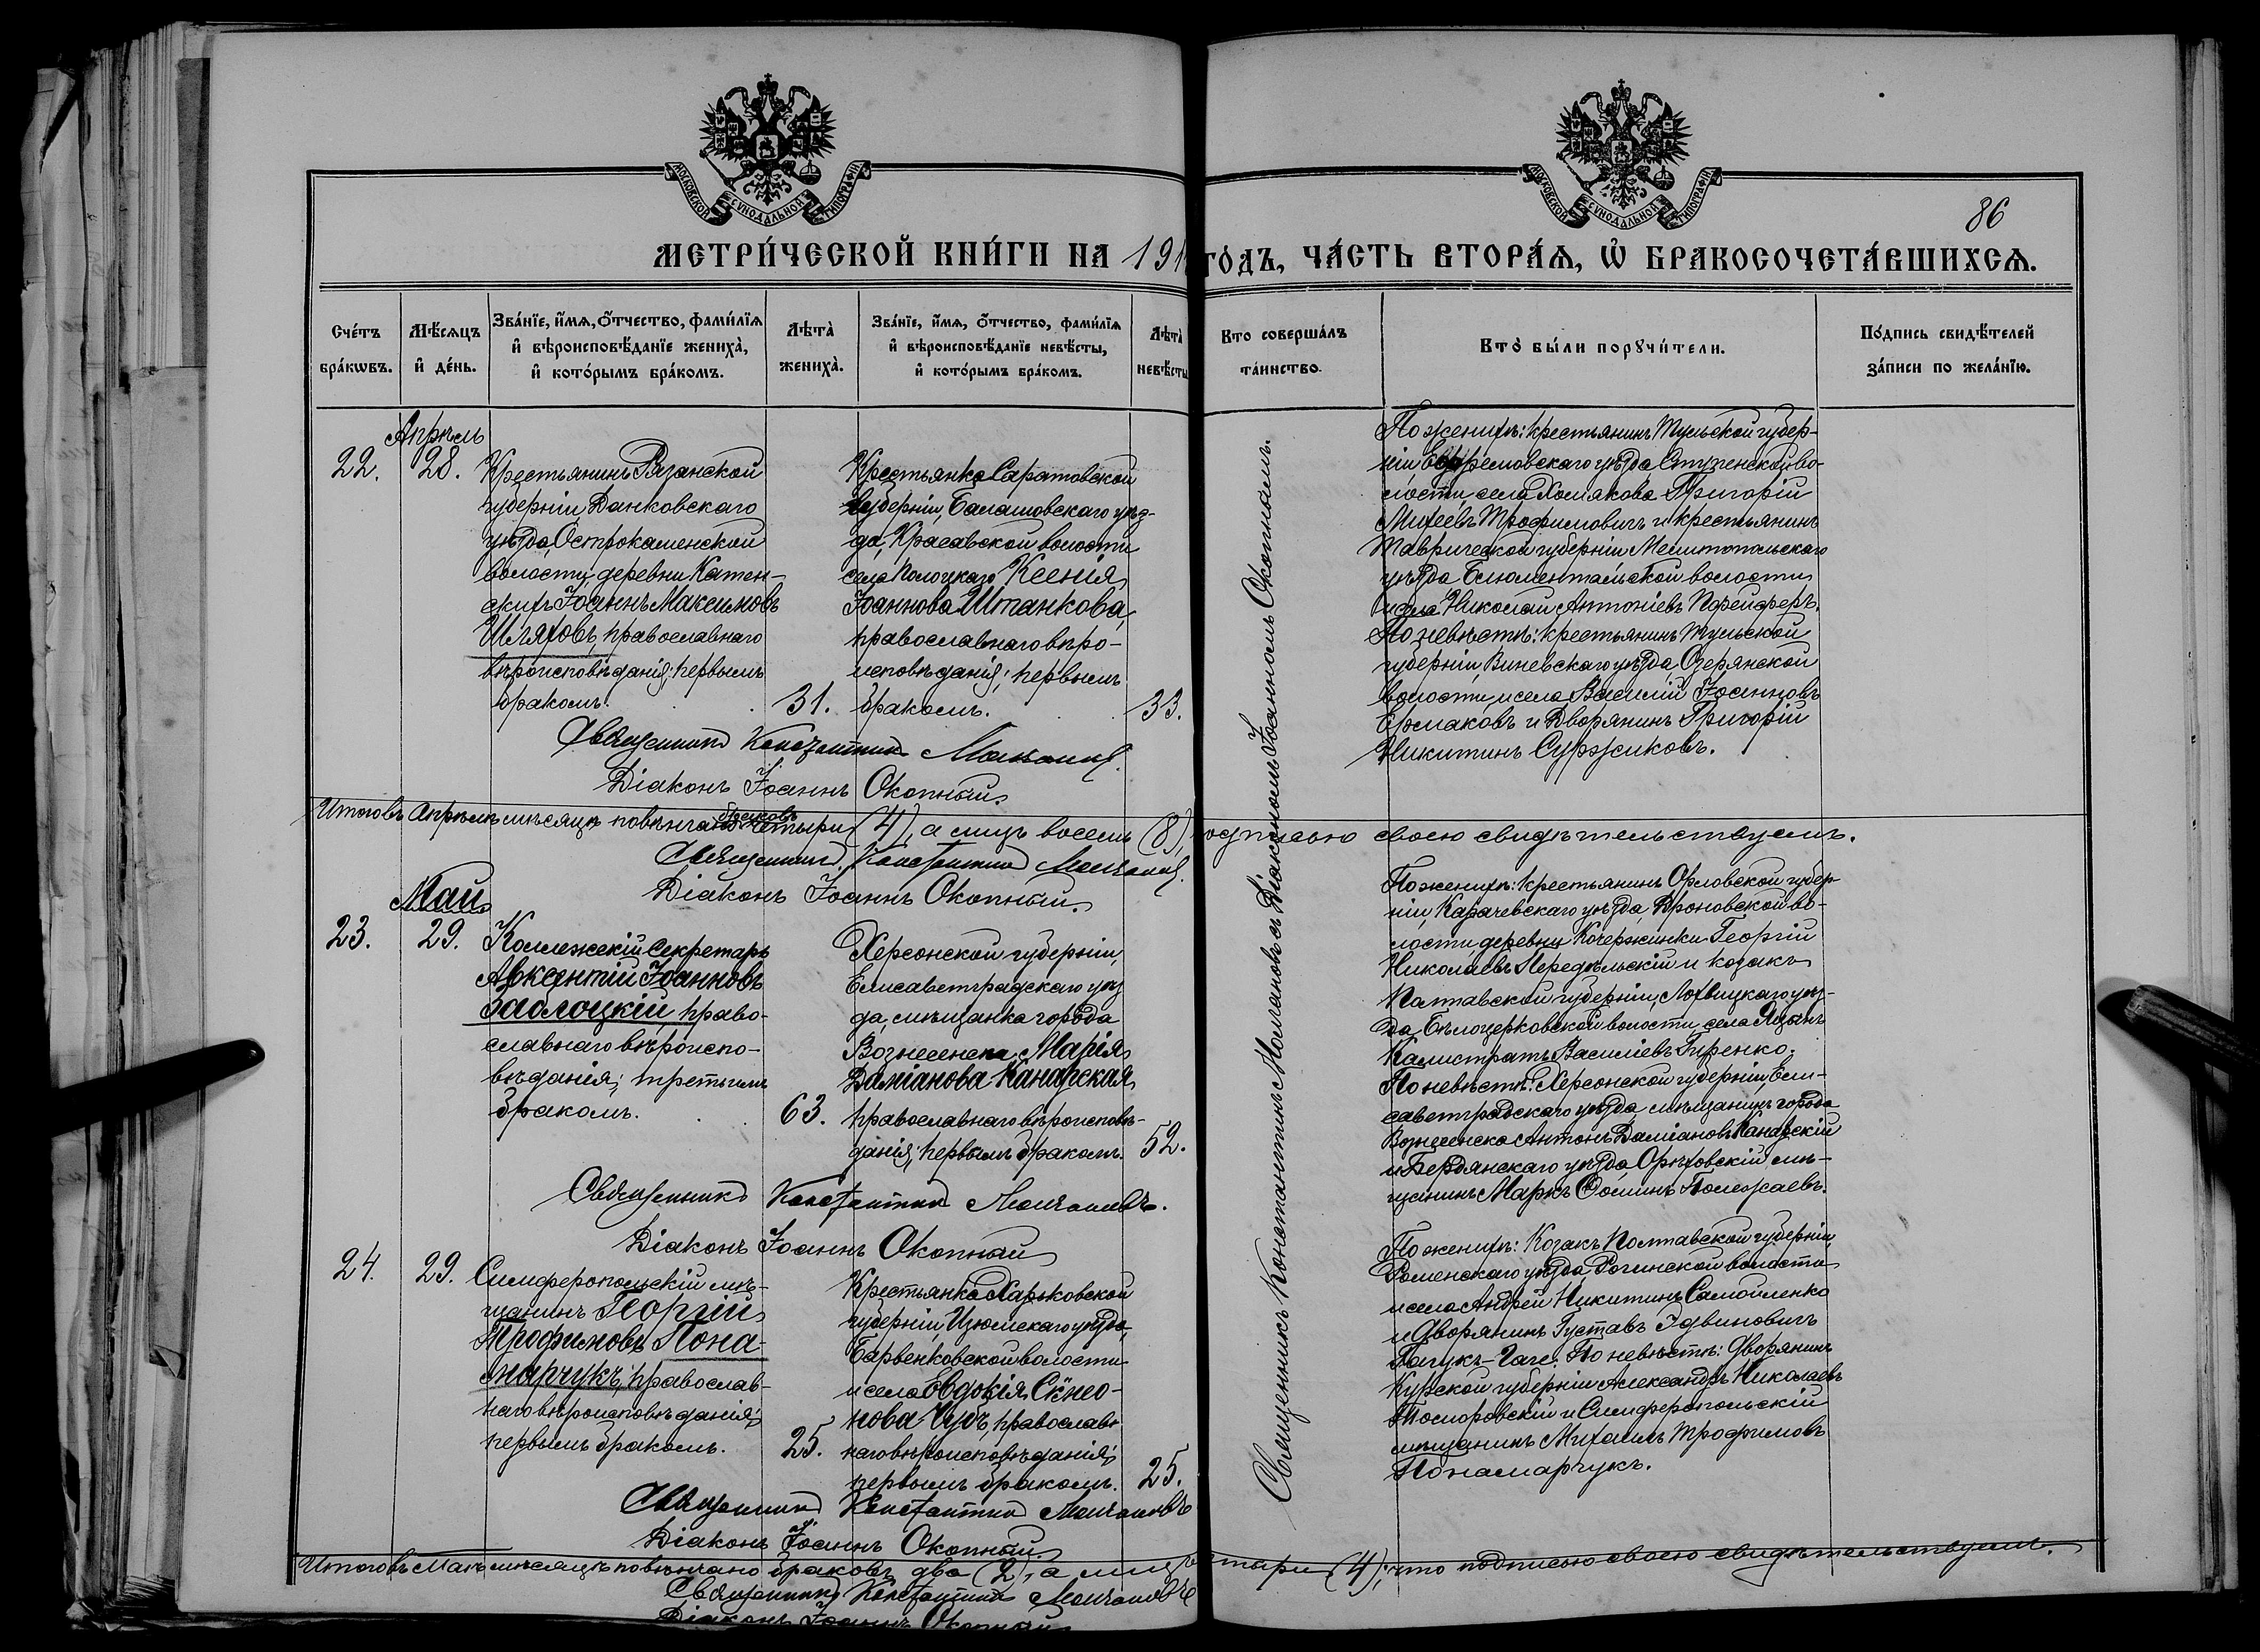 МОСКОВСКОЙ СѴНОДАЛЬНОЙ ТИПОГРАФІИ
МОСКОВСКОЙ СѴНОДАЛЬНОЙ ТИПОГРАФІИ
86
МЕТРИ́ЧЕСКОЙ КНИ́ГИ НА 191 ГО́ДЪ, ЧА́СТЬ ВТОРА́Я, Ѡ҆ БРАКОСОЧЕТА́ВШИХСѦ.
Сче́тъ бра́кѡвъ.
Мѣ́сѧцъ и҆ де́нь.
Зва́нїе, и҆́мѧ, ѻ҆́тчество, фами́лїѧ
и҆ вѣроисповѣ́данїе жениха̀,
и҆ кото́рымъ бра́комъ.
Лѣта̀ жениха̀.
Зва́нїе, и҆́мѧ, ѻ҆́тчество, фами́лїѧ
и҆ вѣроисповѣ́данїе невѣ́сты,
и҆ кото́рымъ бра́комъ.
Лѣта̀ невѣ́сты
Кто соверша́лъ
та́инство.
Кто̀ бы́ли порꙋчи́тели.
По́дпись свидѣ́телей
за́писи по жела́нїю.
Апрѣль
22.
28.
Крестьянинъ Рязанской
губерніи, Данковскаго
уѣзда, Острокаменской
волости, деревни Катен-
скихъ Іоаннъ Максимовъ
Шляховъ, православнаго
вѣроисповѣданія; первымъ
бракомъ.
31.
Крестьянка Саратовской
губерніи, Балашовскаго уѣз-
да, Красавской волости
села Колоцкаго Ксенія
Іоаннова Штанкова,
православнаго вѣро-
исповѣданія; первымъ
бракомъ.
33.
Священникъ Константинъ Молчановъ
Діаконъ Іоаннъ Окопный.
По женихѣ: крестьянинъ Тульской губер-
ніи Ефремовскаго уѣзда Ступенской во-
лости, села Хомякова Григорій
Михеевъ Трофимовичъ и крестьянинъ
Таврической губерніи Мелитопольскаго
уѣзда Блюментальской волости
и села Николай Антоніевъ Пфейферъ.
По невѣстѣ: крестьянинъ Тульской
губерніи, Веневскаго уѣзда, Озерянской
волости и села Василій Іоанновъ
Ермаковъ и Дворянинъ Григорій
Никитинъ Суржиковъ.
Священникъ Константинъ Молчановъ съ Діакономъ Іоанномъ Окопнымъ.
Итого въ Апрѣлѣ мѣсяцѣ повѣнчано браковъ четыре (4), а лицъ восемь (8), подписью своею свидѣтельствуемъ.
Священникъ Константинъ Молчановъ.
Діаконъ Іоаннъ Окопный.
Май
23.
29.
Коллежскій Секретарь
Авксентій Іоанновъ
Заблоцкій, право-
славнаго вѣроиспо-
вѣданія; третьимъ
бракомъ.
63.
Херсонской губерніи,
Елисаветградскаго уѣз
да, мѣщанка города
Вознесенска Марія
Даміанова Канарская
православнаго вѣроисповѣ-
данія; первымъ бракомъ.
52.
Священникъ Константинъ Молчановъ.
Діаконъ Іоаннъ Окопный
По женихѣ: крестьянинъ Орловской губер-
ніи, Карачевскаго уѣзда, Дроновской во-
лости, деревни Кочержинки Георгій
Николаевъ Передѣльскій и козакъ
Полтавской губерніи, Лохвицкаго уѣз-
да, Бѣлоцерковской волости, села Яцынъ
Калистратъ Василіевъ Гиренко.
По невѣстѣ: Херсонской губерніи Ели-
саветградскаго уѣзда, мѣщанинъ города
Вознесенска Антонъ Даміановъ Канарскій
и Бердянскаго уѣзда, Орѣховскій мѣ-
щанинъ Маркъ Ѳоминъ Полежаевъ.
24.
29.
Симферопольскій мѣ-
щанинъ Георгій
Трофимовъ Пона-
марчукъ, православ-
наго вѣроисповѣданія;
первымъ бракомъ.
25.
Крестьянка Харьковской
губерніи, Изюмскаго уѣзда,
Барвенковской волости
и села Евдокія Сѵмео-
нова Чубъ, православ-
наго вѣроисповѣданія;
первымъ бракомъ.
25.
Священникъ Константинъ Молчановъ
Діаконъ Іоаннъ Окопный.
По женихѣ: Козакъ Полтавской губерніи,
Роменскаго уѣзда Рогинской волости
и села Андрей Никитинъ Самойленко
и Дворянинъ Густавъ Эдвиновичъ
По невѣстѣ: Дворянинъ
Курской губерніи Александръ Николаевъ
и Симферопольскій
мѣщанинъ Михаилъ Трофимовъ
Понамарчукъ.
Итого въ Маѣ мѣсяцѣ повѣнчано браковъ два (2), а лицъ четыре (4); что подписью своею свидѣтельствуемъ.
Священникъ Константинъ Молчановъ
Діаконъ Іоаннъ Окопный